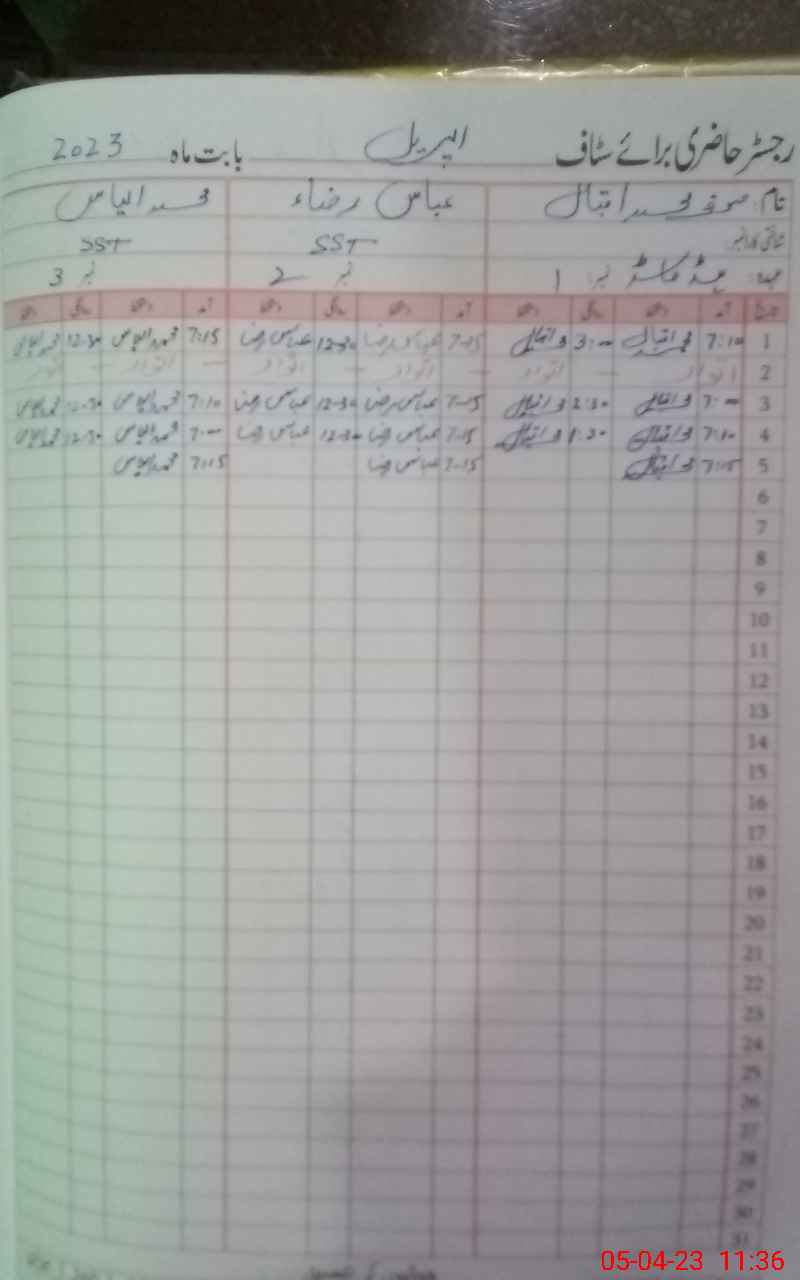 رجسٹر حاضری برائے سٹاف اپریل بابت ماہ 2023
نام: محمد اقبال عباس رضاء محمد الیاس
شناختی کارڈ نمبر: SST SST
عہدہ: ہیڈ ماسٹر نمبر 1 نمبر 2 نمبر 3
تاریخ آمد دستخط روانگی دستخط آمد دستخط روانگی دستخط آمد دستخط روانگی دستخط
1 7:10 محمد اقبال 3:00 م اقبال 7-15 عباس رضا 12-30 عباس رضا 7:15 محمد الیاس 12-30 محمد الیاس
2 اتوار اتوار اتوار اتوار اتوار اتوار
3 7:00 م اقبال 2:30 م اقبال 7-15 عباس رضا 12-30 عباس رضا 7:10 محمد الیاس 12-30 محمد الیاس
4 7:10 م اقبال 1:30 م اقبال 7-15 عباس رضا 12-30 عباس رضا 7:00 محمد الیاس 12-30 محمد الیاس
5 7:15 م اقبال 7-15 عباس رضا 7:15 محمد الیاس
6
7
8
9
10
11
12
13
14
15
16
17
18
19
20
21
22
23
24
25
26
27
28
29
30
31
05-04-23 11:36